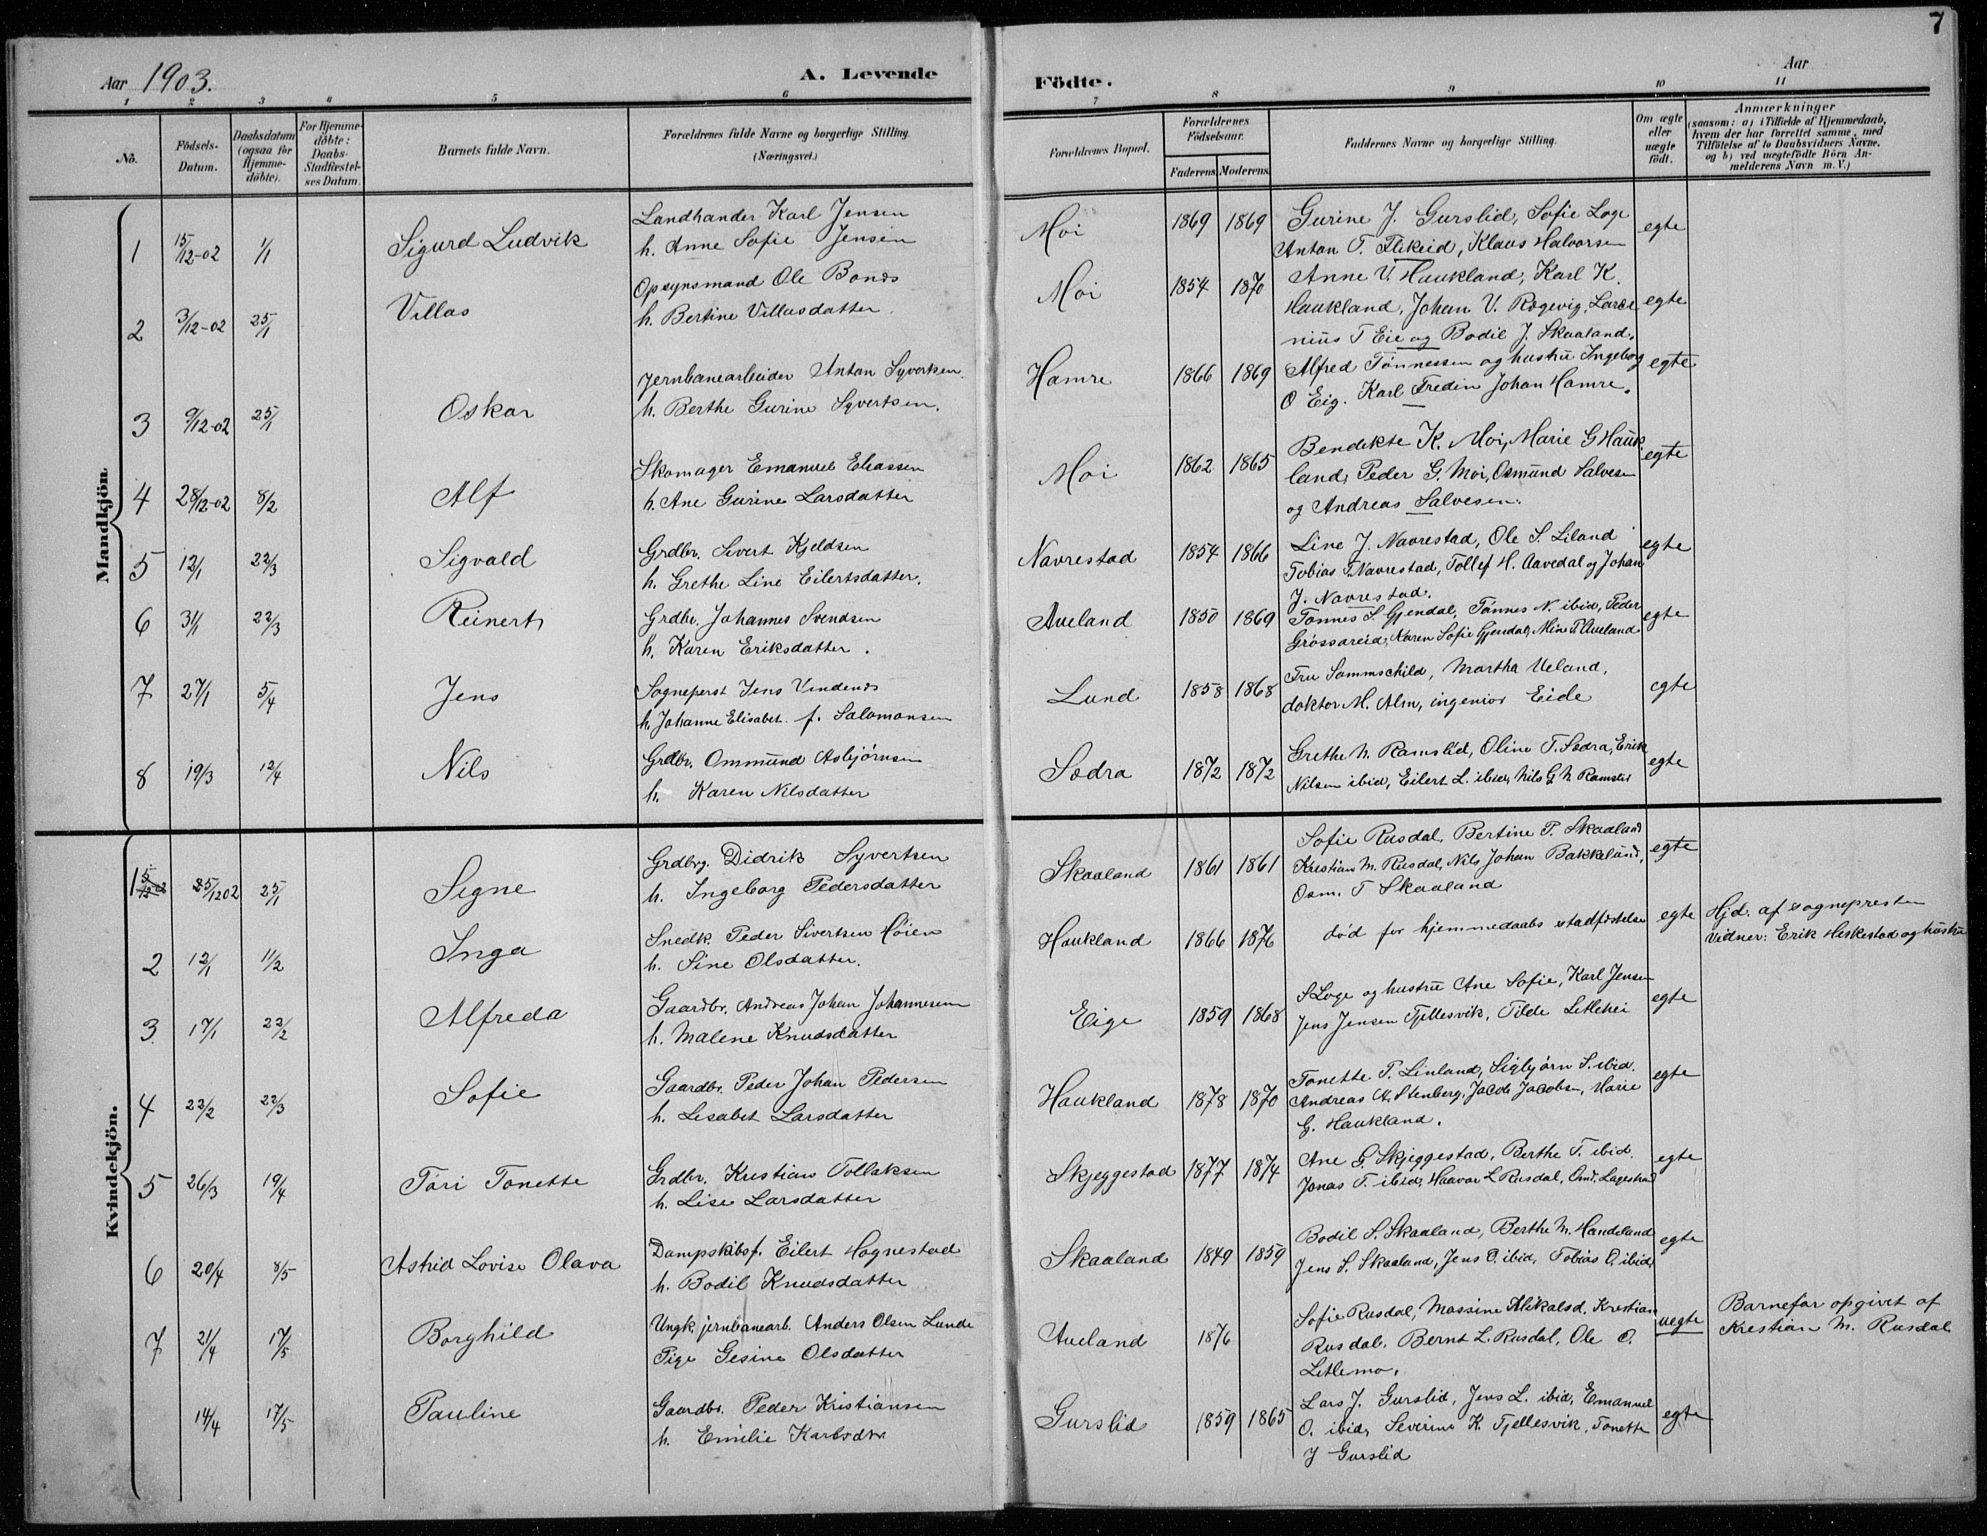 7
Aar 1903. A. Levende Födte. Aar
1 2 3 4 5 6 7 8 9 10 11
No. Födsels-Datum. Daabsdatum (ogsaa for Hjemme-döbte). For Hjemme-döbte: Daabs-Stadfæstel-ses Datum. Barnets fulde Navn. Forældrenes fulde Navne og borgerlige Stilling. (Næringsvei.) Forældrenes Bopæl. Forældrenes Födselsaar. Faderens. Moderens. Faddernes Navne og borgerlige Stilling. Om ægte eller uægte födt. Anmærkninger (saasom: a) i Tilfælde af Hjemmedaab, hvem der har forrettet samme, med Tilföielse af to Daabsvidners Navne. og b) ved uægtefödte Börn An-melderens Navn m. V.)
Mandkjön
1 15/12-02 1/1 Sigurd Ludvik Landhander Karl Jensen Moi 1869 1869 Gurine J. Gurslid, Sofie Loge egte
h. Anne Sofie Jensen Anton T. Flikeid, Klaus Halvorsen
2 3/12-02 25/1 Villas Opsynsmand Ole Bonds Moi 1854 1870 Anne V. Haukland, Karl K. egte
h. Bertine Villasdatter. Haukland, Johan V. Røgevig, Larde
nius T Eie og Bodil J. Skaaland.
3 9/12-02 25/1 Oskar Jernbanearbeider Anton Syvertsen. Hamre 1866 1869 Alfred Tønnessen og hustru Ingeborg egte
h. Berthe Gurine Syvertsen. O Eig. Karl Fredin Johan Hamre.
4 28/12-02 8/2 Alf Skomager Emanuel Eliassen Moi 1862 1865 Bendikte K. Moi, Marie G Hauk egte
h. Ane Gurine Larsdatter land, Peder G. Moi, Osmund Salvesen
og Andreas Salvesen.
5 12/1 22/3 Sigvald Grdbr. Sivert Kjeldsen Navrestad 1854 1866 Line J. Navrestad, Ole S. Liland egte
h. Grethe Line Eilertsdatter. Tobias S. Navrestad, Tollef H. Aavedal og Johan
J. Navrestad.
6 31/1 22/3 Reinert Grdbr. Johannes Svendsen Aueland 1850 1869 Tønnes S. Gjendal, Tønnes N. ibid, Peder egte
h. Karen Eriksdatter. Grøssareid, Karen Sofie Gjendal, Mine T Aueland
7 27/1 5/4 Jens Sogneperst Jens Vindenes Lund 1858 1868 Fru Sommschild, Martha Ueland, egte
h. Johanne Elisabet f. Salomonsen doktor M. Alm, ingeniør Eide
8 19/3 12/4 Nils Grdbr. Ommund Asbjørnsen Sædra 1872 1872 Grethe N. Ramslid, Oline T. Sædra, Erik egte
h. Karen Nilsdatter Nilsen ibid, Eilert L. ibid, Nils G. N Ramslid
Kvindekjön.
1 25/12 02 25/1 Signe Grdbrg. Didrik Syvertsen Skaaland 1861 1861 Sofie Rusdal, Bertine P. Skaaland egte
h. Ingeborg Pedersdatter Kristian M. Rusdal, Nils Johan Bakkelund,
Osm. T Skaaland
2 12/1 11/2 Inga Snedk. Peder Sivertsen Høien Haukland 1866 1876 død før hjemmedaabs stadfæstelse egte Hjd. af sognepresten
h. Sine Olsdatter. Vidner: Erik Heskestad og hustru
3 17/1 22/2 Alfreda Gaardbr. Andreas Johan Johannesen Eige 1859 1868 S Loge og hustru Ane Sofie, Karl Jensen egte
h. Malene Knudsdatter Jens Jensen Fjellesvik, Tilde Litlehei
4 22/2 22/3 Sofie Gaardbr. Peder Johan Pedersen Haukland 1878 1870 Tonette P. Linland, Sigbjørn S. ibid. egte
h. Lisabet Larsdatter Andreas A. Stenberg, Jacob Jacobsen, Marie
G. Haukland.
5 26/3 19/4 Tori Tonette Grdbr. Kristian Tollaksen Skjeggestad 1877 1874 Ane G. Skjeggestad, Berthe T. ibid. egte
h. Lise Larsdatter Jonas T. ibid, Haavar L Rusdal, Omd. Lagestrad
6 20/4 8/5 Astrid Lovise Olava Dampskibsf. Eilert Hognestad Skaaland 1849 1859 Bodil S. Skaaland, Berthe M. Handeland egte
h. Bodil Knudsdatter Jens S. Skaaland, Jens O. ibid, Tobias O. ibid,
7 21/4 17/5 Borghild Ungk. jernbanearb. Anders Olsen Lunde Aueland 1876 Sofie Rusdal, Massine, Kristian uegte Barnefar opgivet af
Pige Gesine Olsdatter Rusdal, Bernt L. Rusdal, Ole O. Kristian M. Rusdal
Litlemo.
14/4 17/5 Pauline Gaardbr. Peder Kristiansen Gurslid 1859 1865 Lars J. Gurslid, Jens L. ibid, Emanuel egte
h. Emilie Karlsdtr O. ibid, Severine K. Fjellesvik, Tonette
J Gurslid